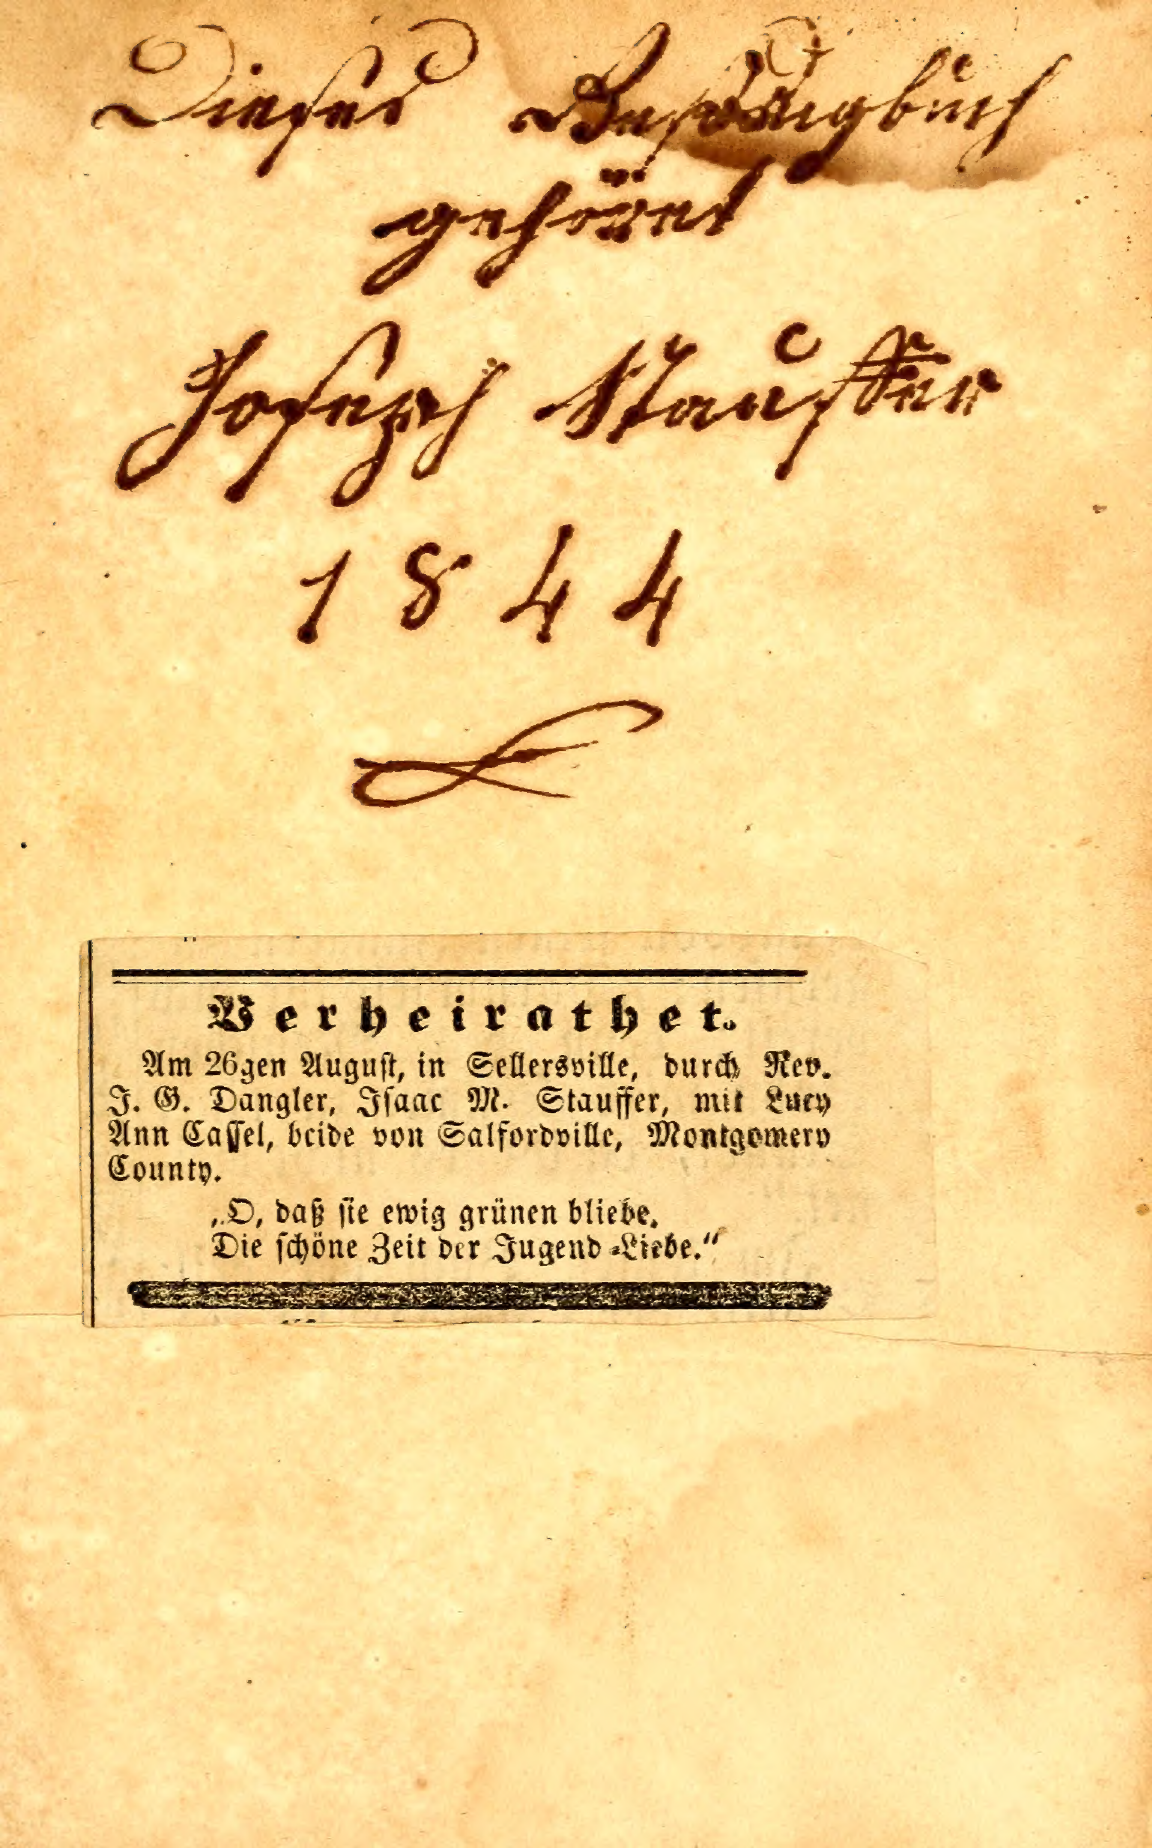 Dieses Gesangbuch
gehöret
Joseph Stauffer
1844
Verheirathet.
Am 26gen August, in Sellersville, durch Rev.
J. G. Dangler, Isaac M. Stauffer, mit Lucy
Ann Cassel, beide von Salfordville, Montgomery
County.
„O, daß sie ewig grünen bliebe,
Die schöne Zeit der Jugend-Liebe.“